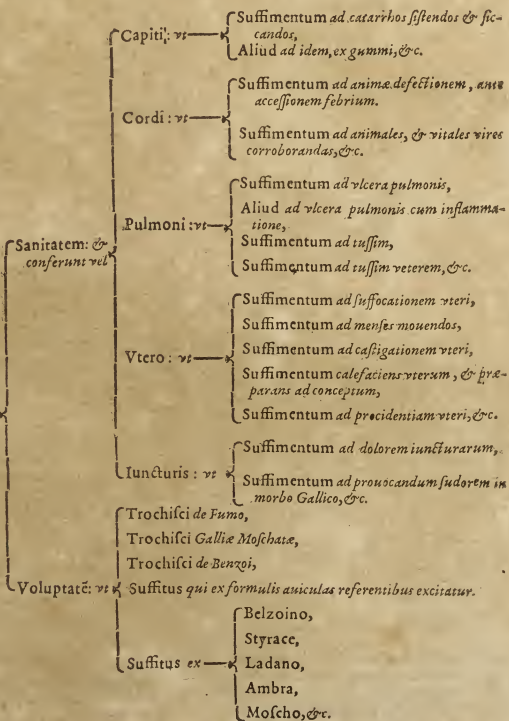 Capiti: vt
Suffimentum ad catarrhos ſiſtendos & ſic-
candos,
Aliud ad idem, ex gummi, &c.
Cordi: vt
Suffimentum ad animæ defectionem, ante
acceſſionem febrium.
Suffimentum ad animales, & vitales vires
corroborandas, &c.
Sanitatem: &
conferunt vel
Pulmoni: vt
Suffimentum ad vlcera pulmonis,
Aliud ad vlcera pulmonis cum inflamma-
tione,
Suffimentum ad tuſſim,
Suffimentum ad tuſſim veterem, &c.
Vtero: vt
Suffimentum ad ſuffocationem vteri,
Suffimentum ad menſes mouendos,
Suffimentum ad caſtigationem vteri,
Suffimentum calefaciens vterum, & præ-
parans ad conceptum,
Suffimentum ad procidentiam vteri, &c.
Iuncturis: vt
Suffimentum ad dolorem iuncturarum,
Suffimentum ad prouocandum ſudorem in
morbo Gallico, &c.
Voluptatẽ: vt
Trochiſci de Fumo,
Trochiſci Galliæ Moſchatæ,
Trochiſci de Benzoi,
Suffitus qui ex formulis auiculas referentibus excitatur.
Suffitus ex
Belzoino,
Styrace,
Ladano,
Ambra,
Moſcho, &c.